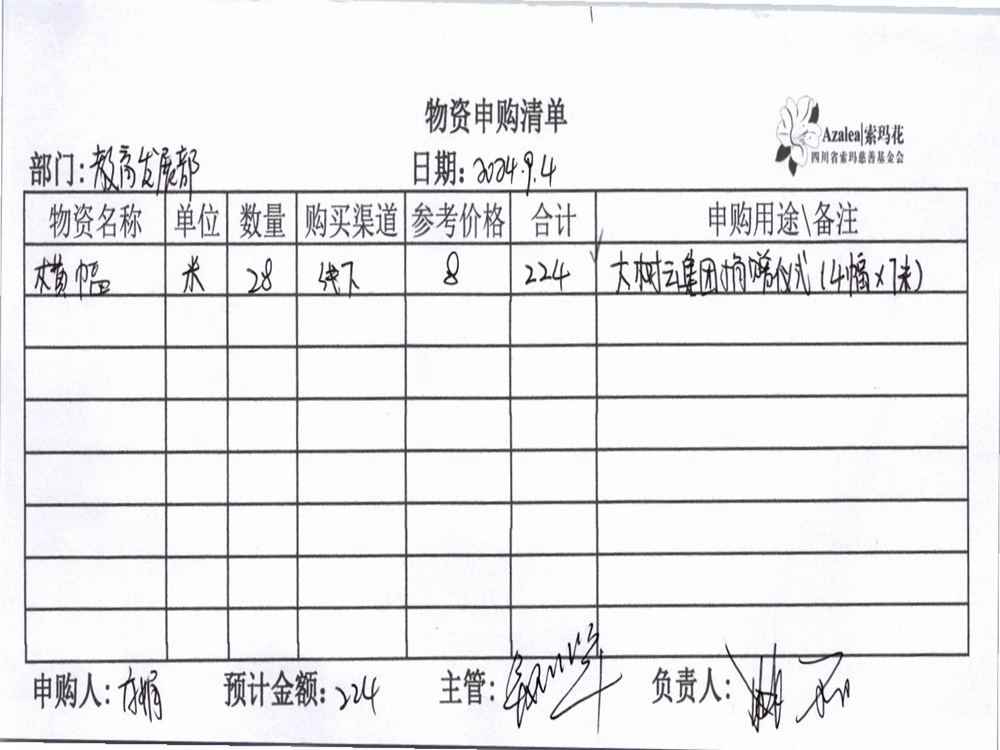 物资申购清单
Azalea|索玛花
四川省索玛慈善基金会
部门：教育发展部 日期：2024.9.4
物资名称 单位 数量 购买渠道 参考价格 合计 申购用途\备注
横幅 米 28 线下 8 224 大树云集团捐赠仪式（4幅×7米）
申购人： 预计金额：224 主管： 负责人：